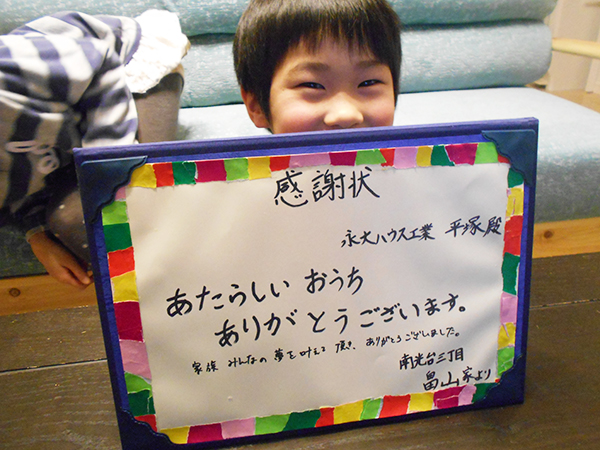 感謝状
永大ハウス工業 平塚殿
あたらしい おうち
ありがとうございます。
家族 みんなの 夢を叶えて 頂き、ありがとうございました。
南光台三丁目
畠山家より